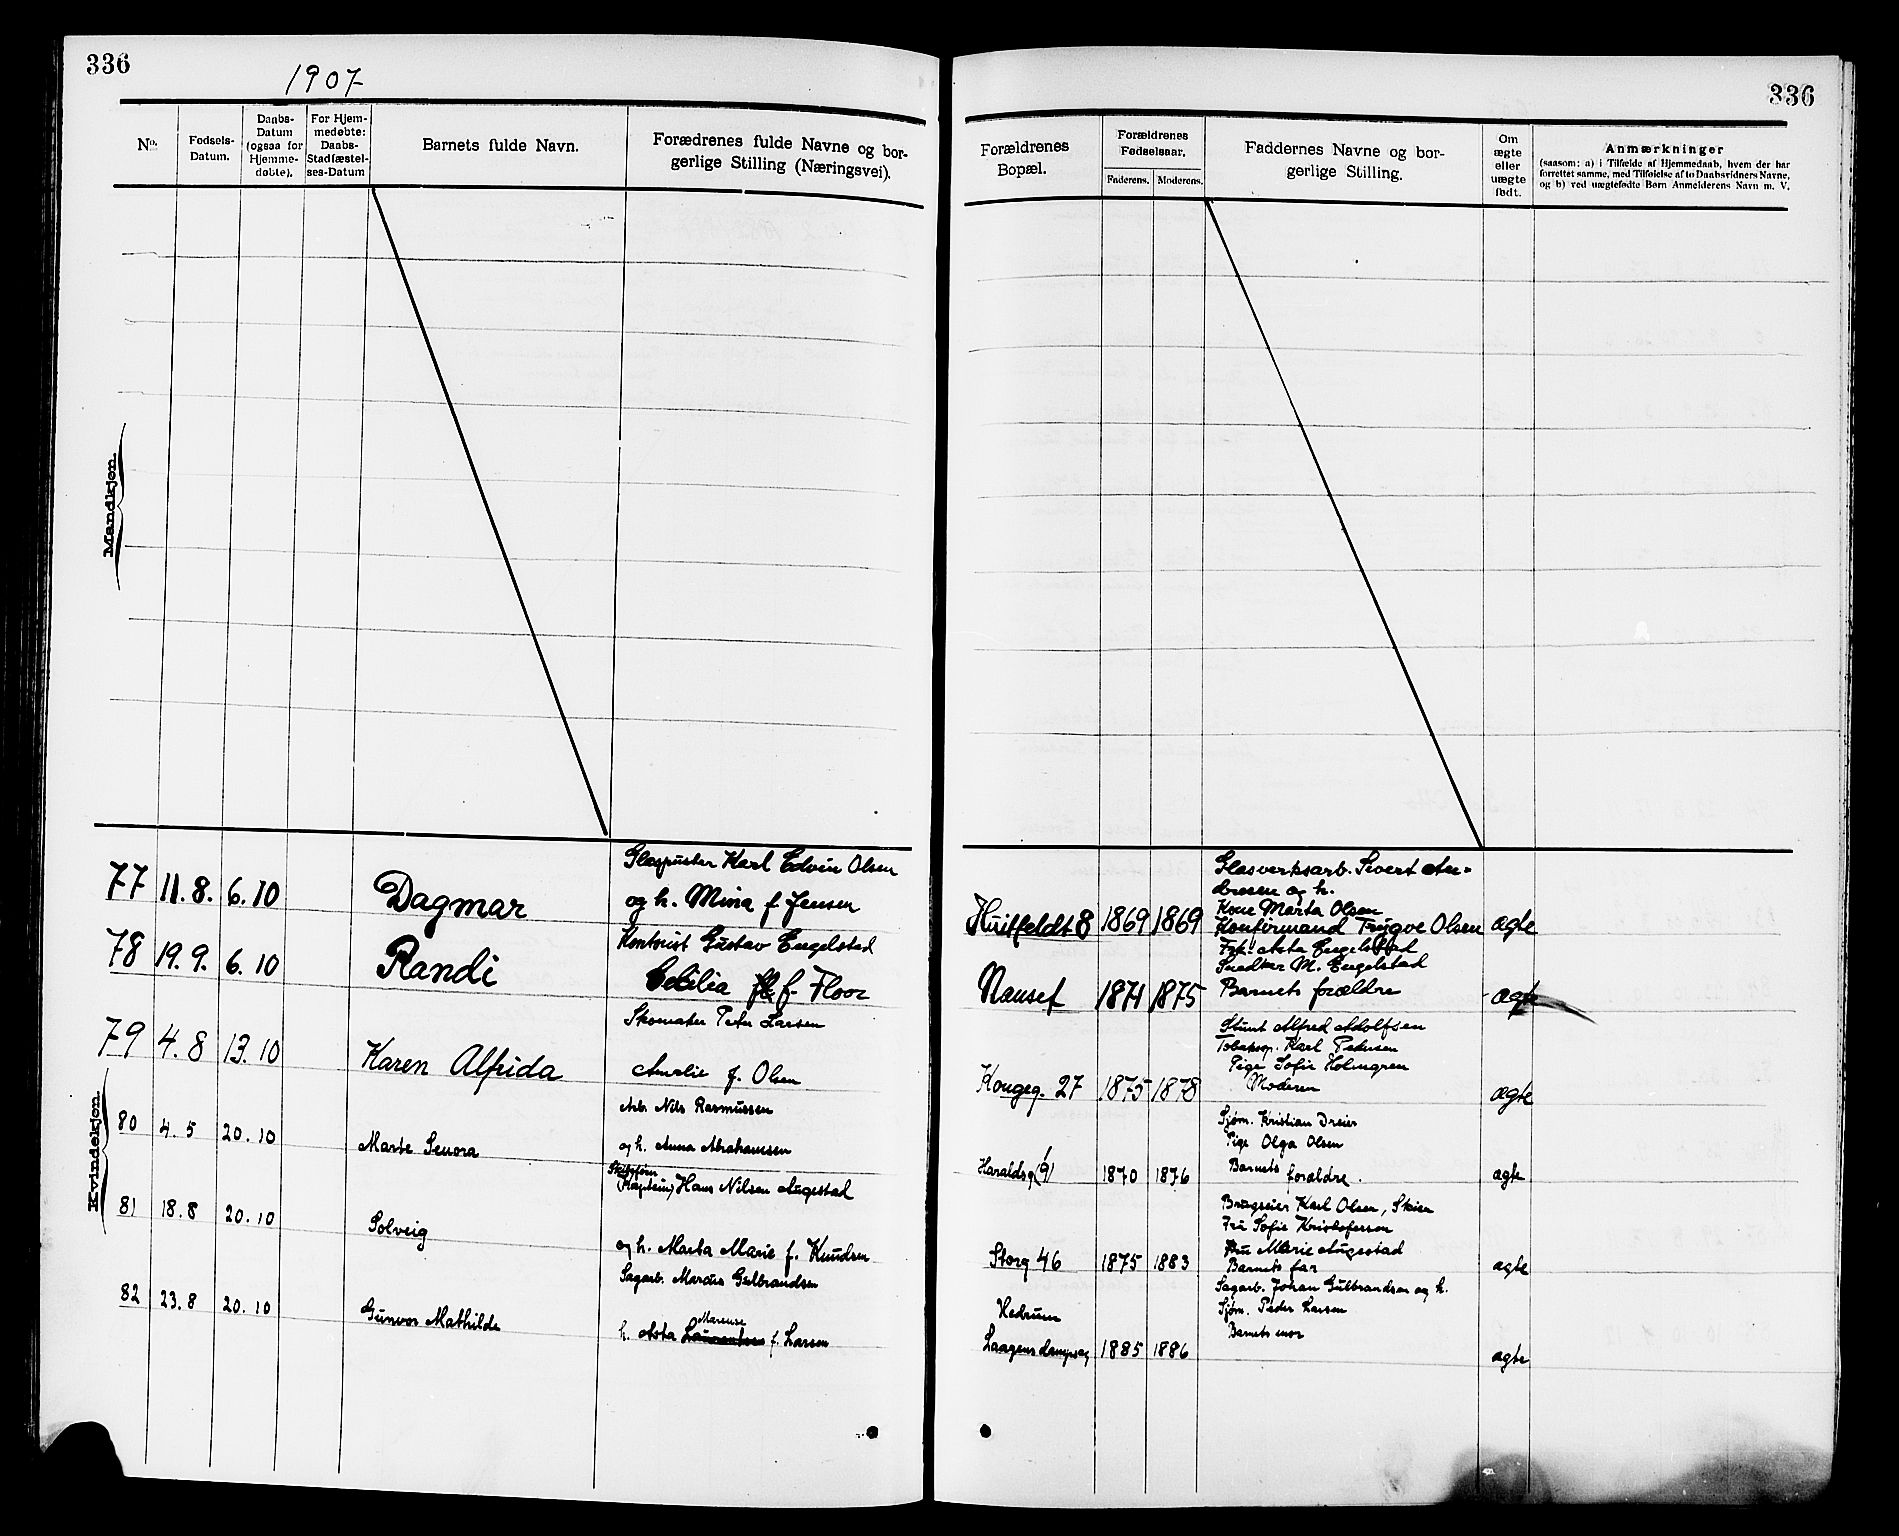 336
1907
No.
Fødsels-
Datum.
Daabs-
Datum
(ogsaa for
Hjemme-
døbte).
For Hjem-
medøbte:
Daabs-
Stadfæstel-
ses-Datum
Barnets fulde Navn.
Forædrenes fulde Navne og bor-
gerlige Stilling (Næringsvei).
336
Forældrenes
Bopæl.
Forældrenes
Fødselsaar.
Faderens. Moderens.
Faddernes Navne og bor-
gerlige Stilling.
Om
ægte
eller
uægte
født.
Anmærkninger
(saasom: a) i Tilfælde af Hjemmedaab, hvem der har
forrettet samme, med Tilføielse af to Daabsvidners Navne,
og b) ved uægtefødte Børn Anmelderens Navn m. V.
Mandkjøn.
Kvindekjøn.
77 11.8. 6.10
Dagmar
Glaspuster Karl Edvin Olsen
og h. Mina f. Jensen
Huitfeldt 8 1869 1869
Glasverksarb. Sivert An-
dresen og h.
Kone Marta Olsen
Konfirmand Trygve Olsen
ægte
78 19.9. 6.10
Randi
Kontorist Gustav Engelstad
Cecilia f. Floor
Nansef 1871 1875
Frk. Asta Engelstad
Snedker M. Engelstad
Barnets forældre
ægte
79 4.8 13.10
Karen Alfrida
Skomaker Peter Larsen
Amalie f. Olsen
Kongeg. 27 1875 1878
Alfred Adolfsen
Karl Pedersen
Pige Sofie Holmgren
Moderen
ægte
80 4.5 20.10
Marte Senora
Arb. Nils Rasmussen
og h. Anna Abrahamsen
Haraldsg (9) 1870 1876
Sjøm. Kristian Dreier
Pige Olga Olsen
Barnets forældre.
ægte
81 18.8 20.10
Solveig
Skibsfører
(Kaptein) Hans Nilsen Augestad
og h. Marta Marie f. Knudsen
Storg 46 1875 1883
Brugseier Karl Olsen, Skien
Fru Sofie Kristofersen
Fru Marie Augestad
Barnets far
ægte
82 23.8 20.10
Gunvor Mathilde
Sagarb. Marius Gulbrandsen
Marense
h. Asta Laurentse f. Larsen
Hedrum
Laagens 1885 1886
Sagarb. Johan Gulbrandsen og h.
Sjøm. Peder Larsen
Barnets mor
ægte